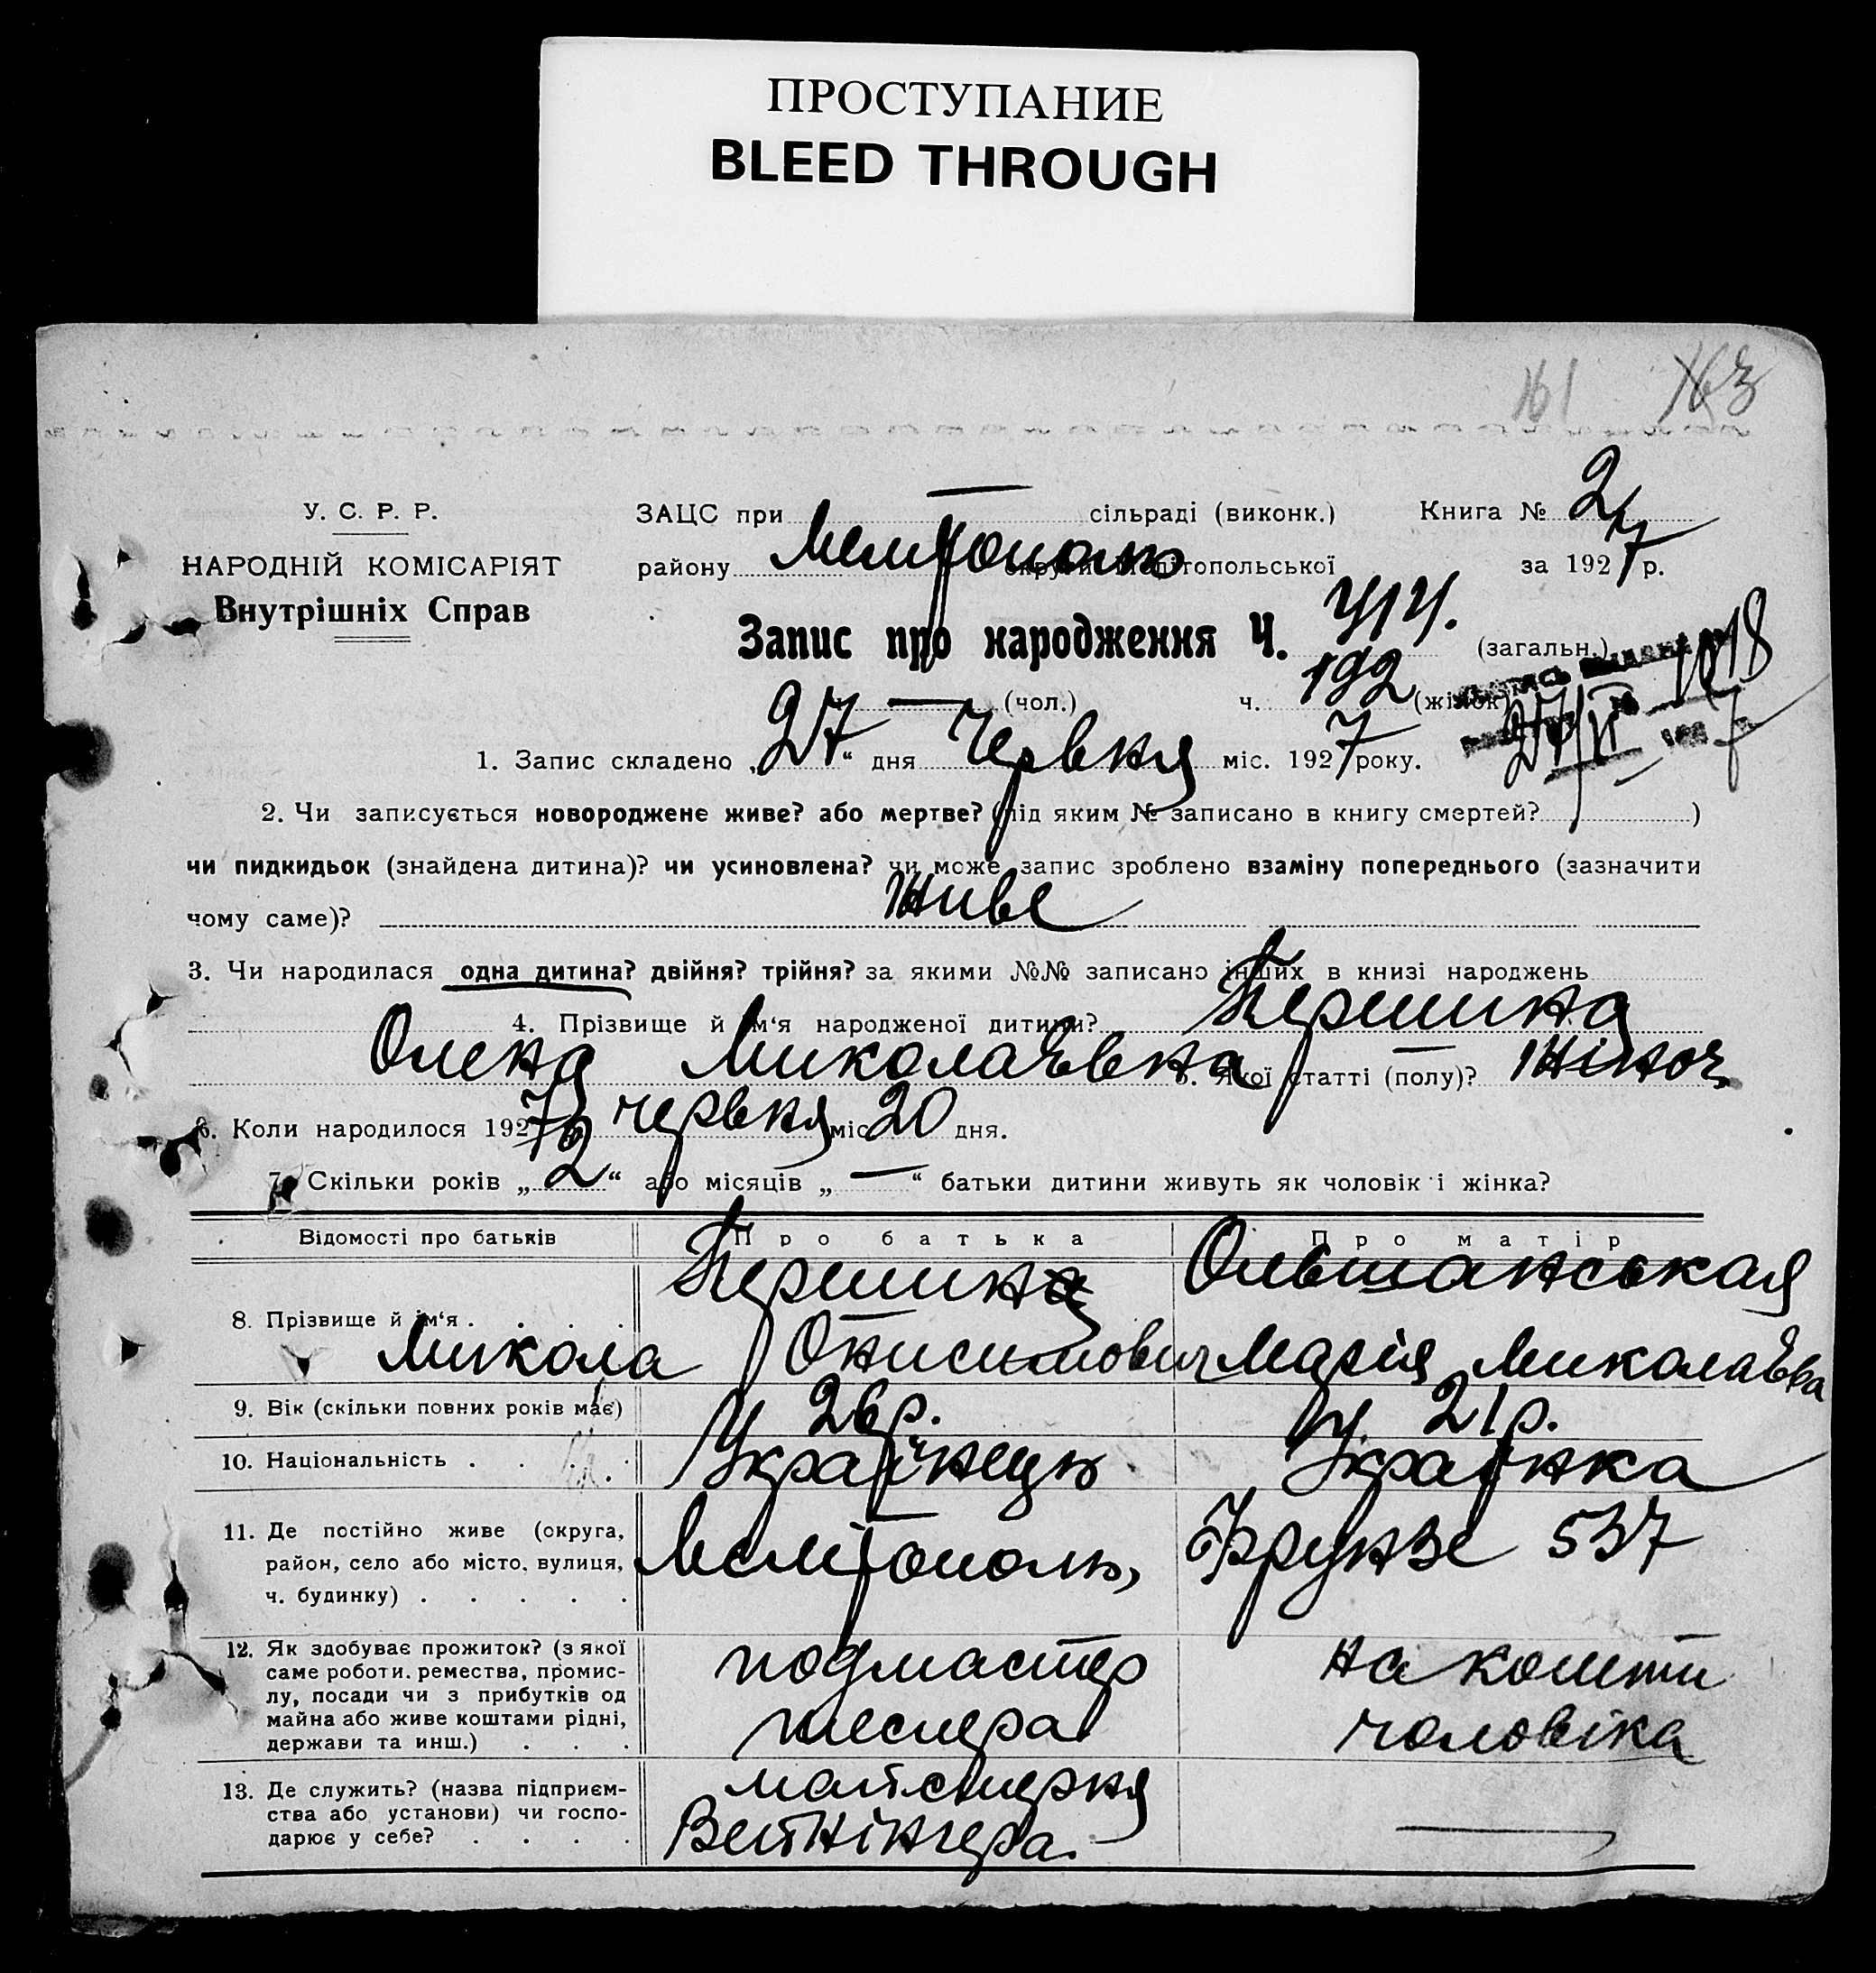 ПРОСТУПАНИЕ
BLEED THROUGH
161 163
У. С. Р. Р.
НАРОДНІЙ КОМІСАРІЯТ
Внутрішніх Справ
ЗАЦС при — сільраді (виконк.) Книга № 2
району Мелітополь округи Мелітопольської за 1927 р.
Запис про народження Ч. 414. (загальн.)
— (чол.) ч. 192 (жінок)
1018
27/VI 1927
1. Запис складено „27“ дня Червня міс. 1927 року.
2. Чи записується новороджене живе? або мертве? (під яким № записано в книгу смертей? )
чи пидкидьок (знайдена дитина)? чи усиновлена? чи може запис зроблено взаміну попереднього (зазначити
чому саме)? Живе
3. Чи народилася одна дитина? двійня? трійня? за якими №№ записано інших в книзі народжень
— 4. Прізвище й ім‘я народженої дитини? Першина
Олена Миколаївна 5. Якої статті (полу)? жіноч.
6. Коли народилося 1927 р. червня міс. 20 дня.
7. Скільки років „2“ або місяців „—“ батьки дитини живуть як чоловік і жінка?
Відомості про батьків Про батька Про матір
8. Прізвище й ім‘я . . . . . Першина Ольшанськая
Микола Онисимович Марія Миколаївна
9. Вік (скільки повних років має) 26 р. 21 р.
10. Національність . . . . Українець Українка
11. Де постійно живе (округа,
район, село або місто, вулиця,
ч. будинку) . . . . . Мелітополь, Фрунзе 537
12. Як здобуває прожиток? (з якої
саме роботи, ремества, промис-
лу, посади чи з прибутків од
майна або живе коштами рідні,
держави та инш.) . . . подмастер
шеснера
на кошти
чоловіка
13. Де служить? (назва підприєм-
ства або установи) чи госпо-
дарює у себе? . . . . майстерня
Вейнінгера. —